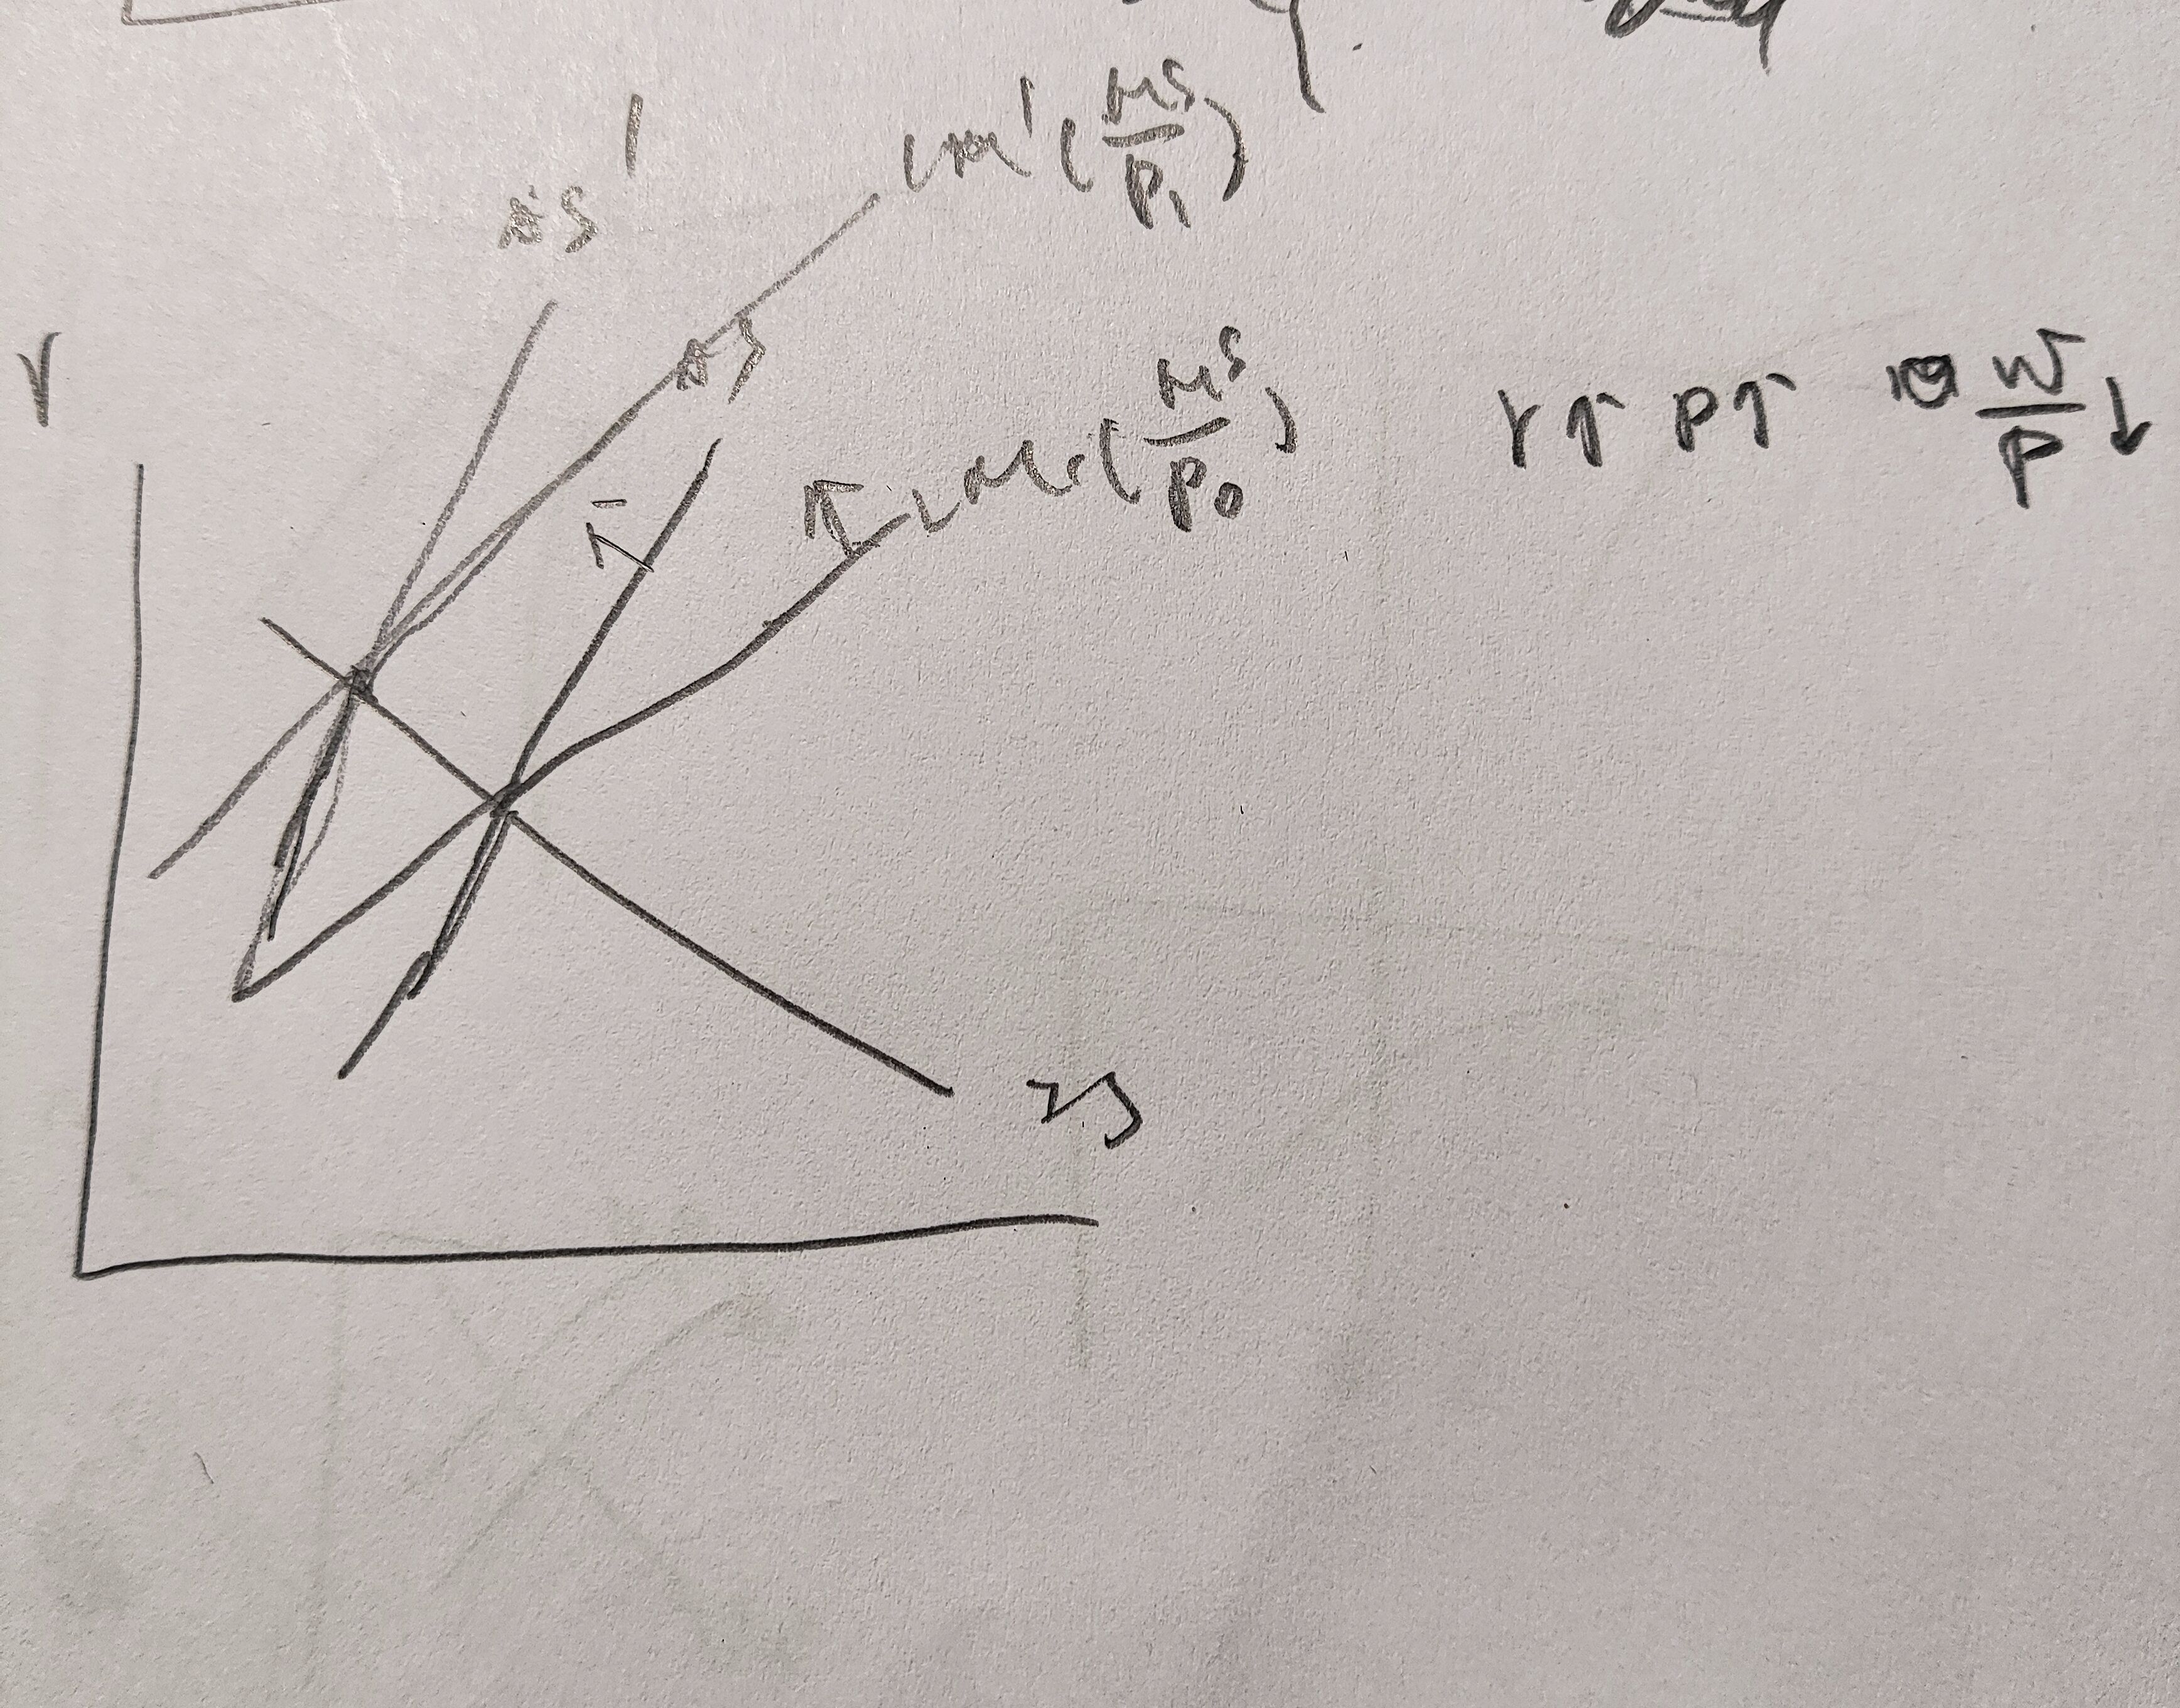 AS'
LM' (Mˢ/P₁)
AS
r
LM (Mˢ/P₀)
r↑ P↑ W/P ↓
IS